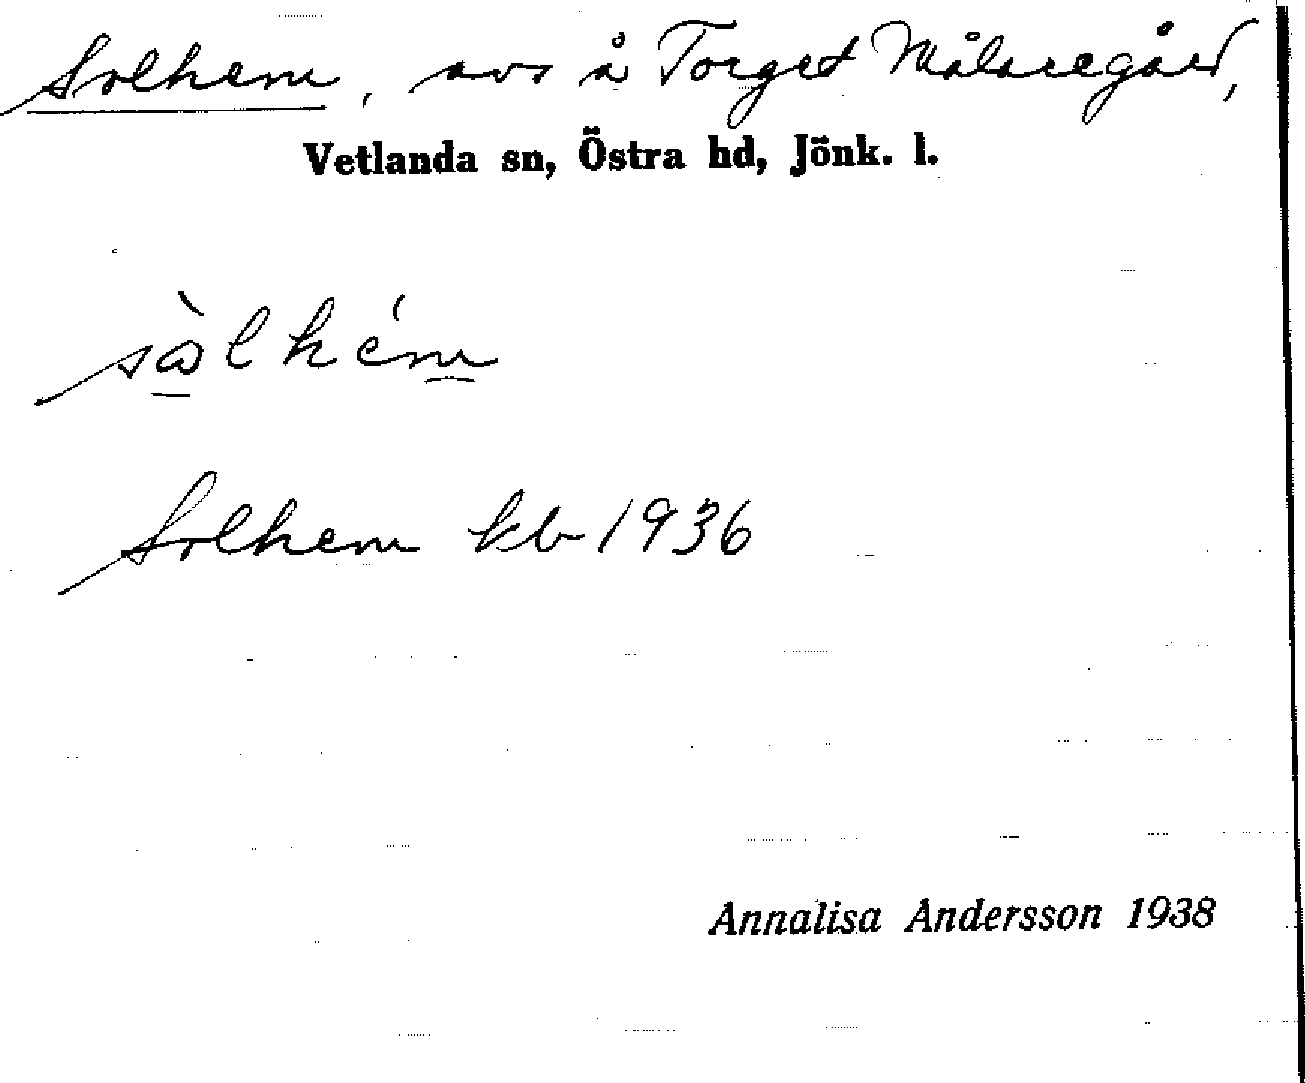 Solhem, avs å Torget Målaregård,
Vetlanda sn, Östra hd, Jönk. l.
sὰlhém
Solhem kb 1936
Annalisa Andersson 1938